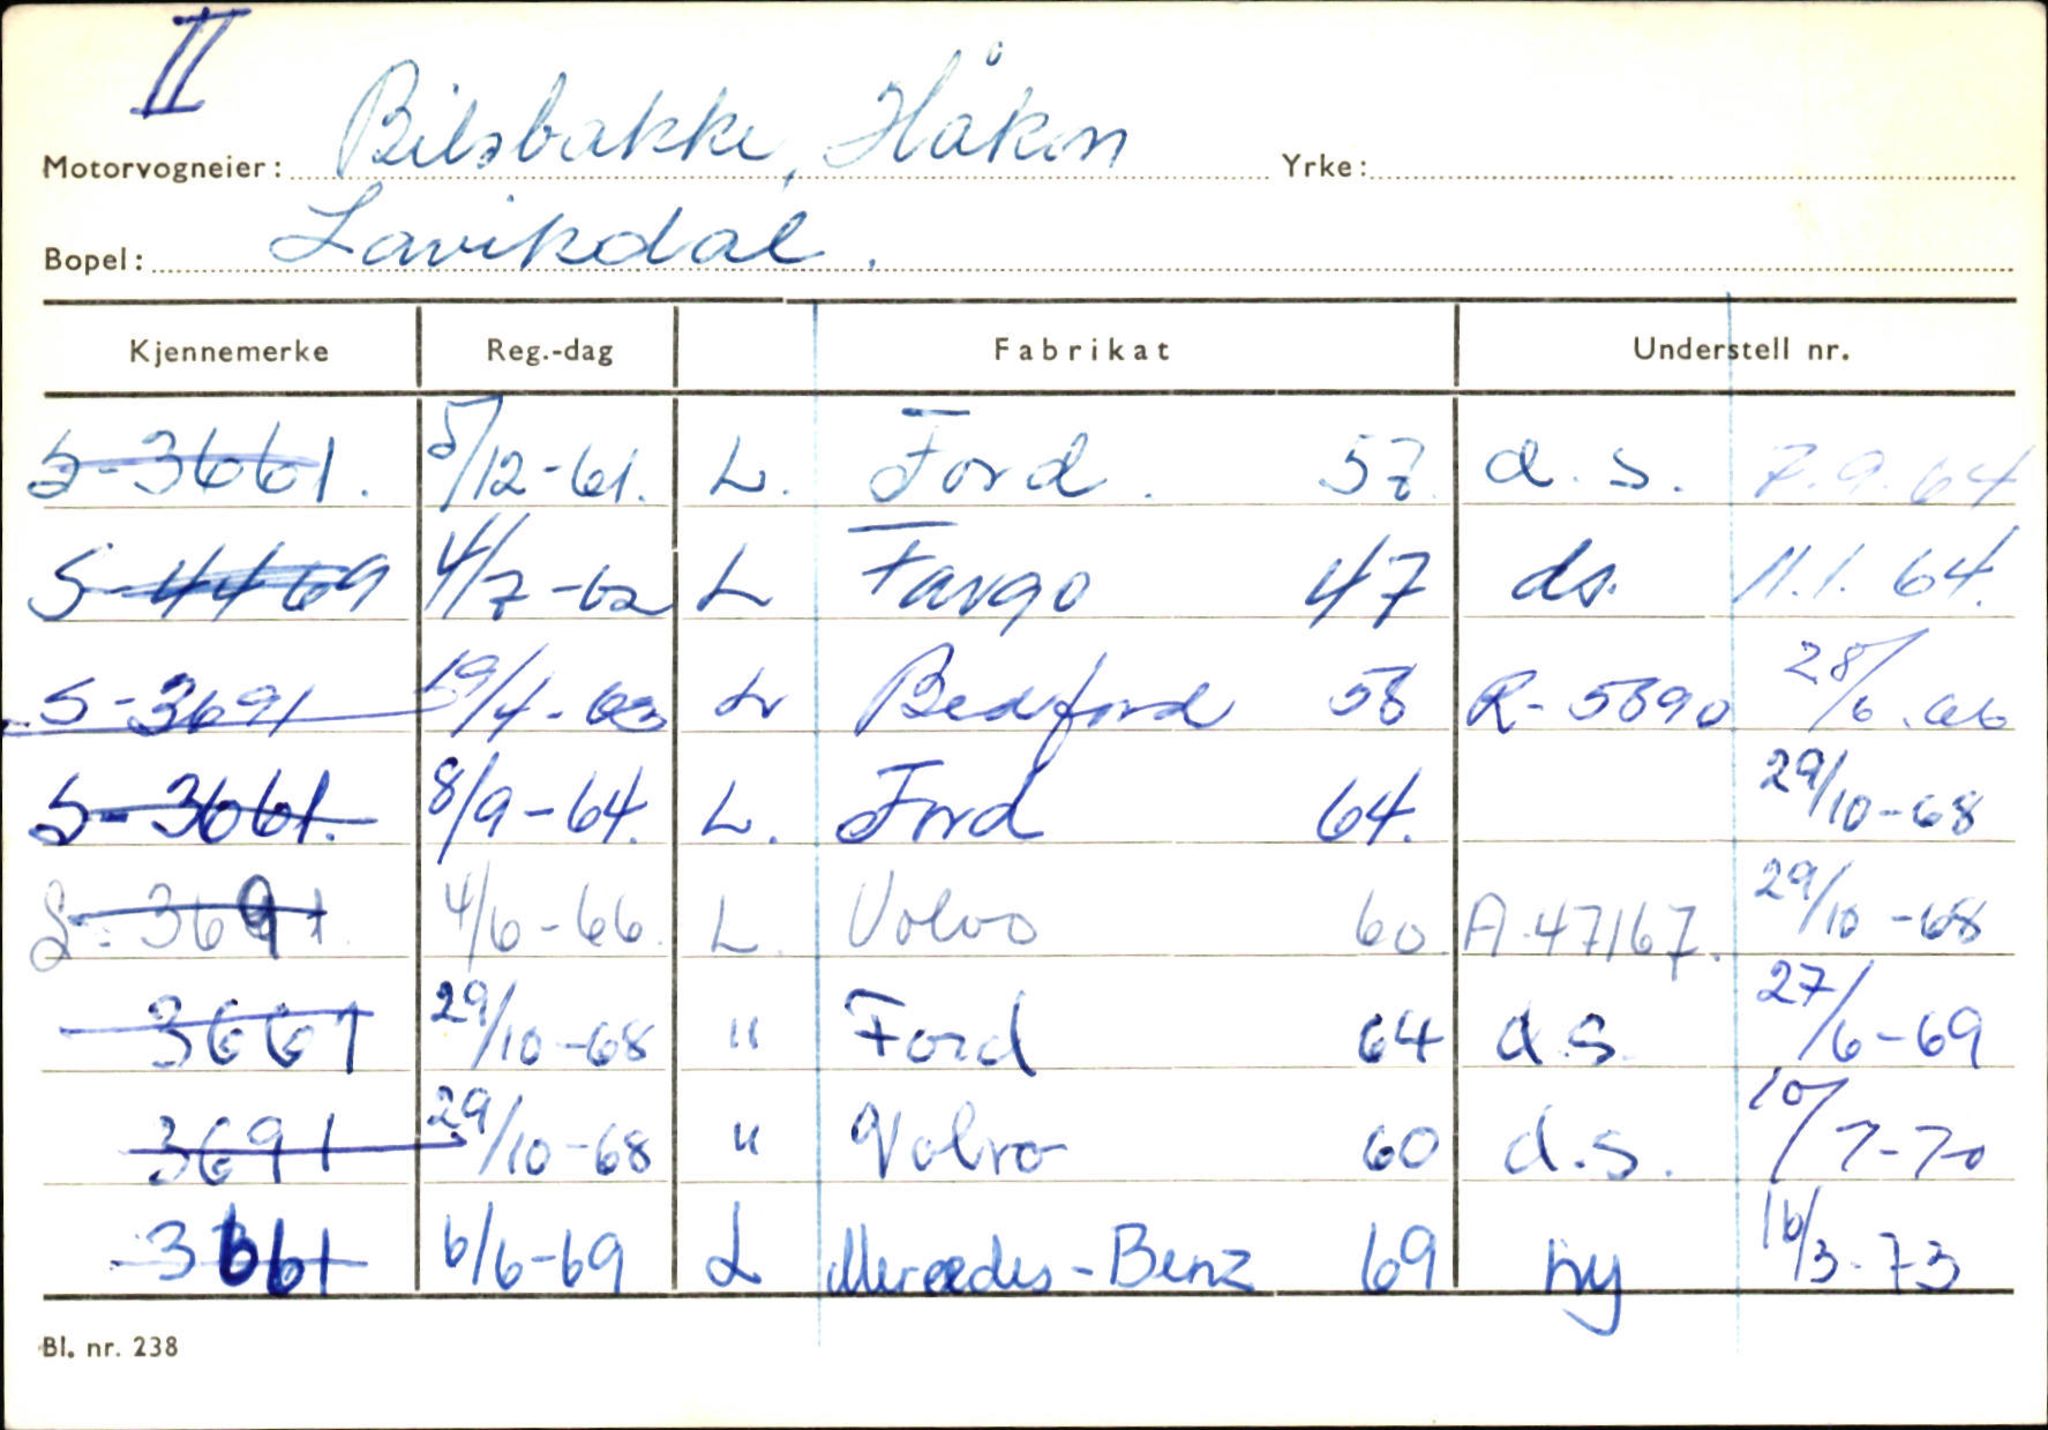 II
Motorvogneier: Bilsbakke, Håkon Yrke:
Bopel: Lavikdal.
Kjennemerke Reg.-dag Fabrikat Understell nr.
S-3661. 5/12-61. L. Ford. 57. d.s. 7.9.64
S-4469 4/7-62 L Fargo 47 ds. 11.1.64.
S-3691 19/4-63 L Bedford 58 R-5890 28/6.66
S-3661. 8/9-64. L. Ford 64. 29/10-68
S-3691. 4/6-66. L. Volvo 60. A-47167. 29/10-68
3661 29/10-68 " Ford 64 d.s. 27/6-69
3691 29/10-68 " Volvo 60 d.s. 10/7-70
3661 6/6-69 L Mercedes-Benz 69 ny 16/3-73
Bl. nr. 238